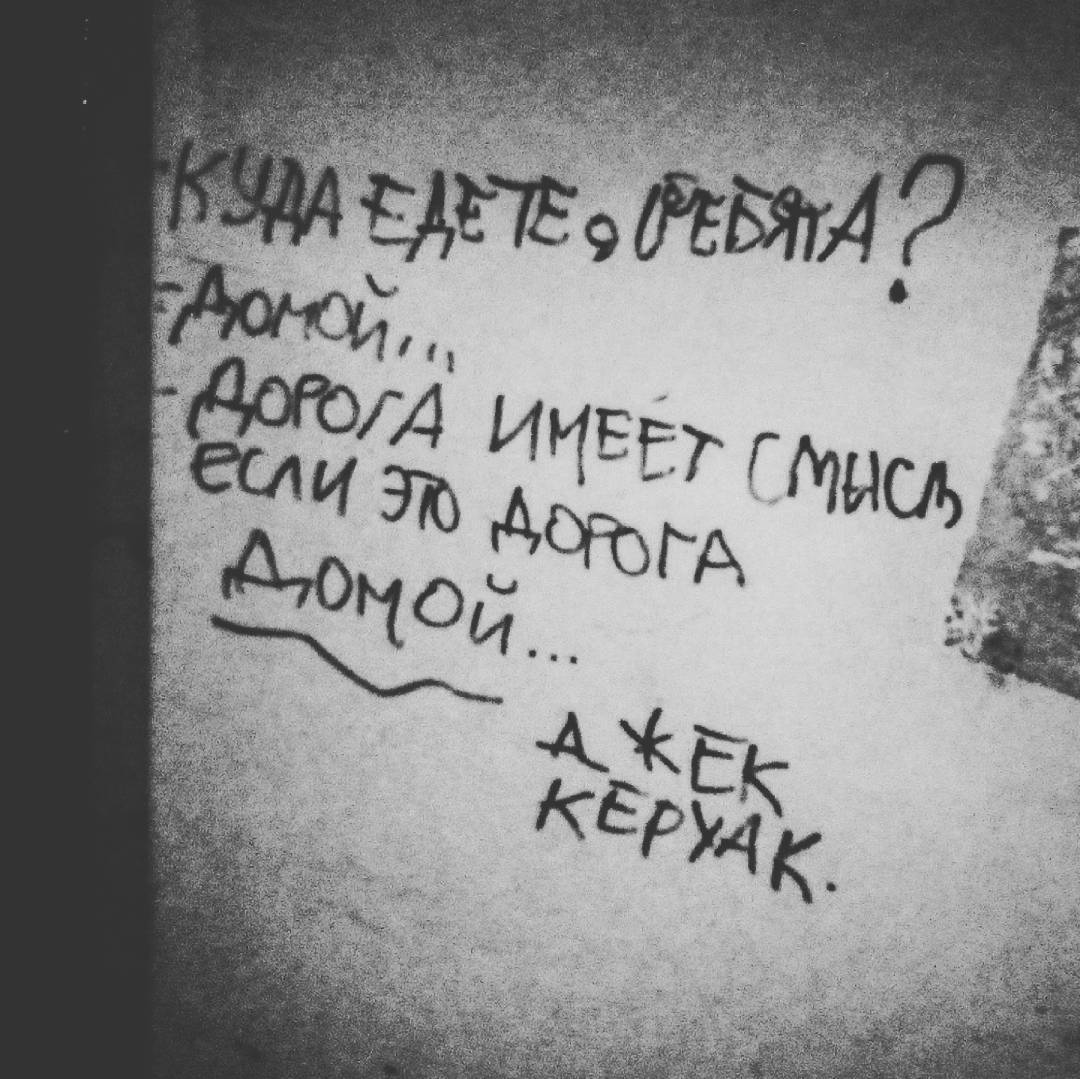 -КУДА ЕДЕТЕ, РЕБЯТА?
-ДОМОЙ...
-ДОРОГА ИМЕЕТ СМЫСЛ
ЕСЛИ ЭТО ДОРОГА
ДОМОЙ...
ДЖЕК
КЕРУАК.